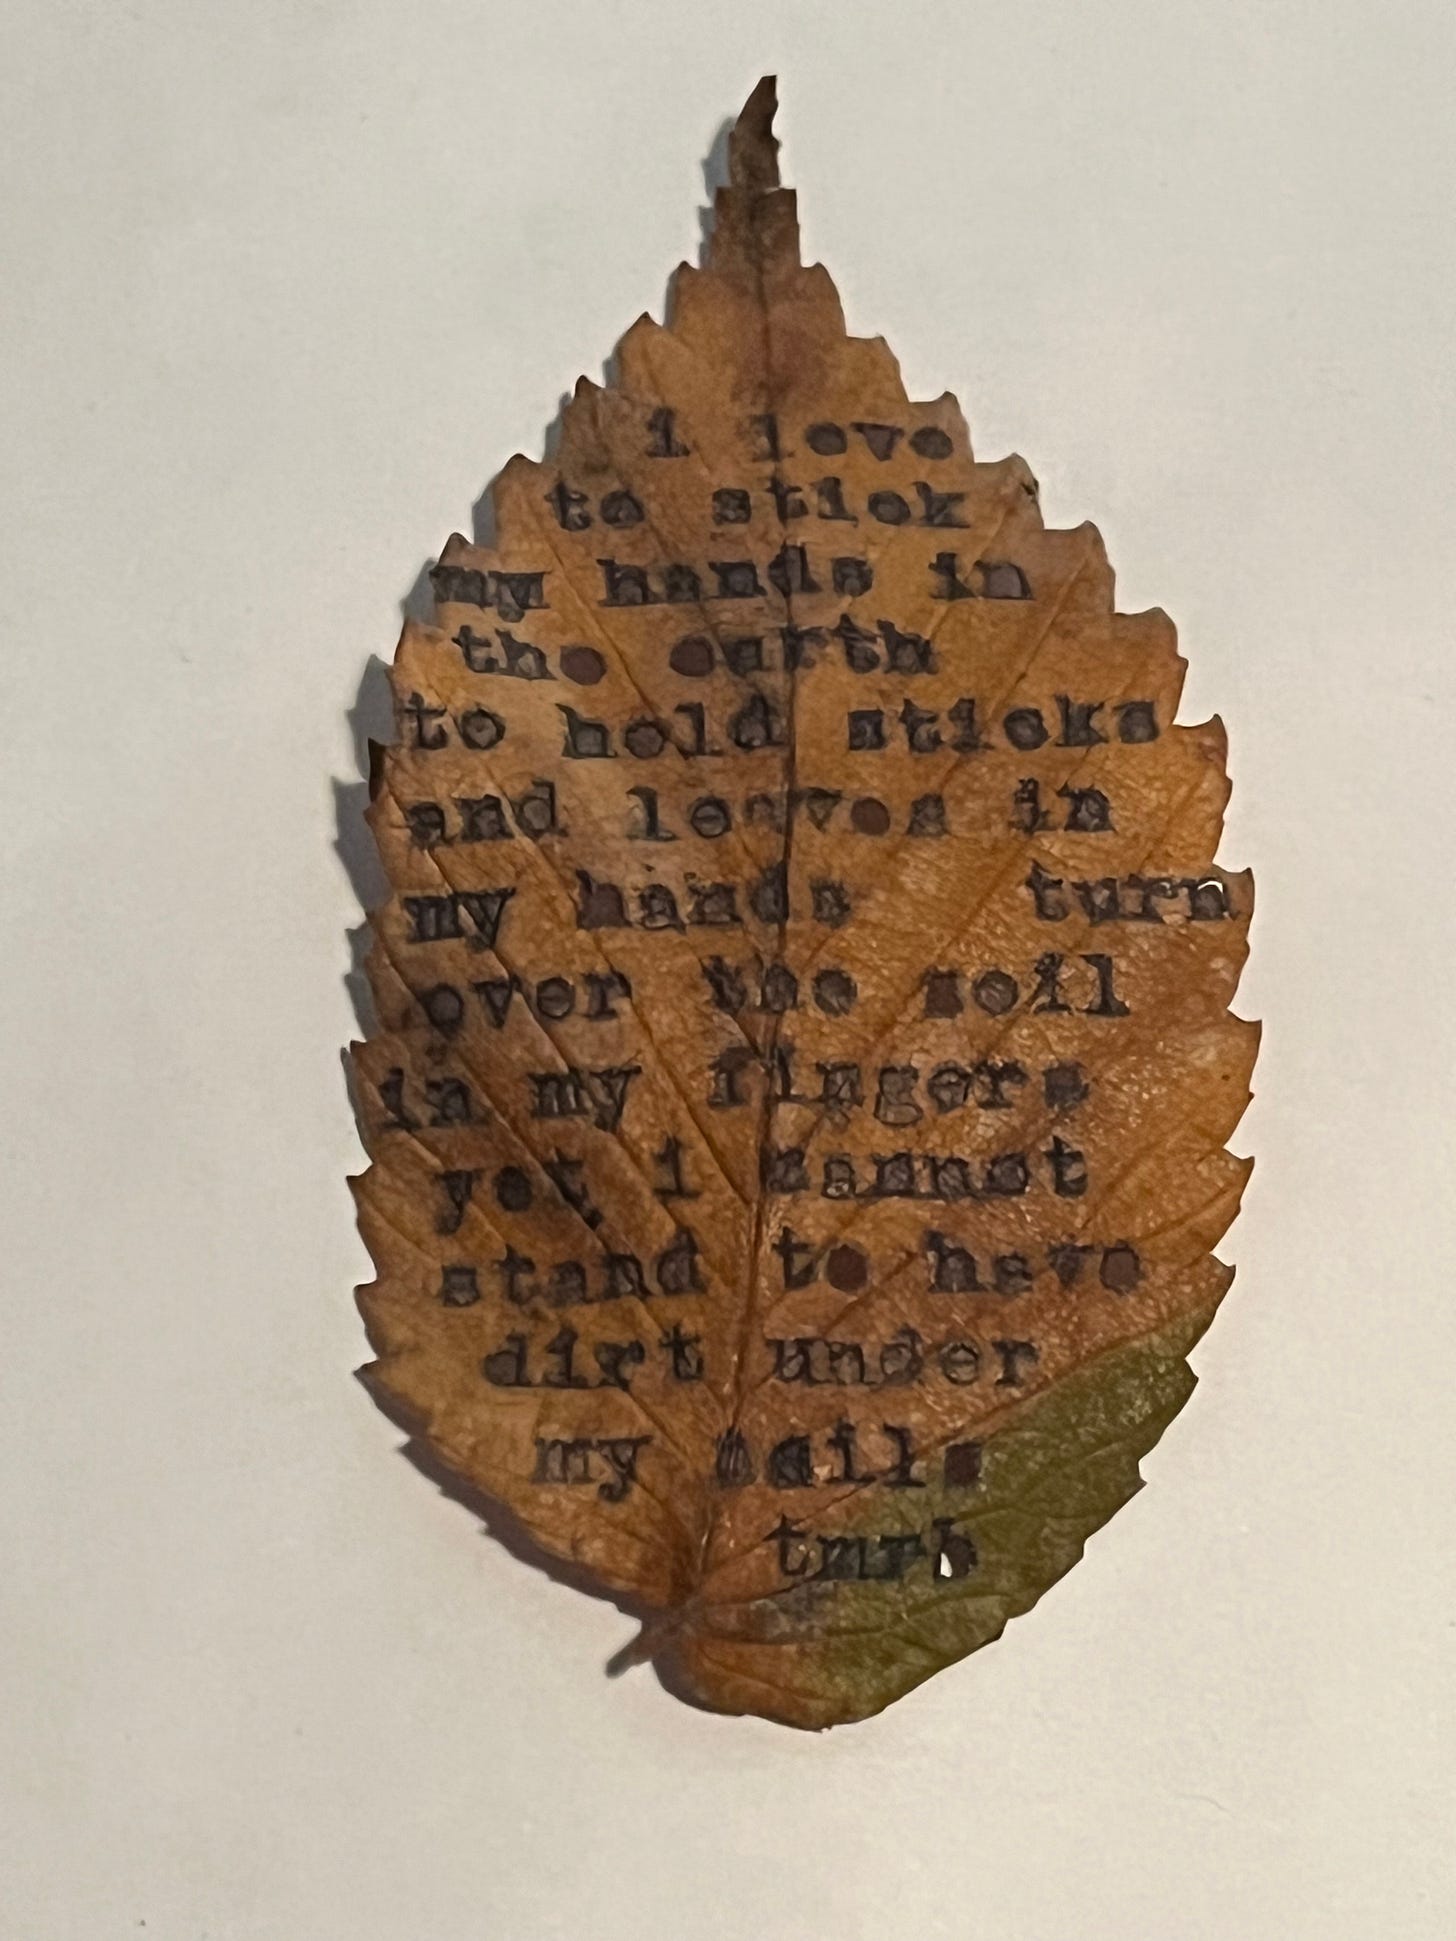 i love
to stick
my hands in
the earth
to hold sticks
and leaves in
my hands turn
over the soil
in my fingers
yet i cannot
stand to have
dirt under
my nails
tmrb